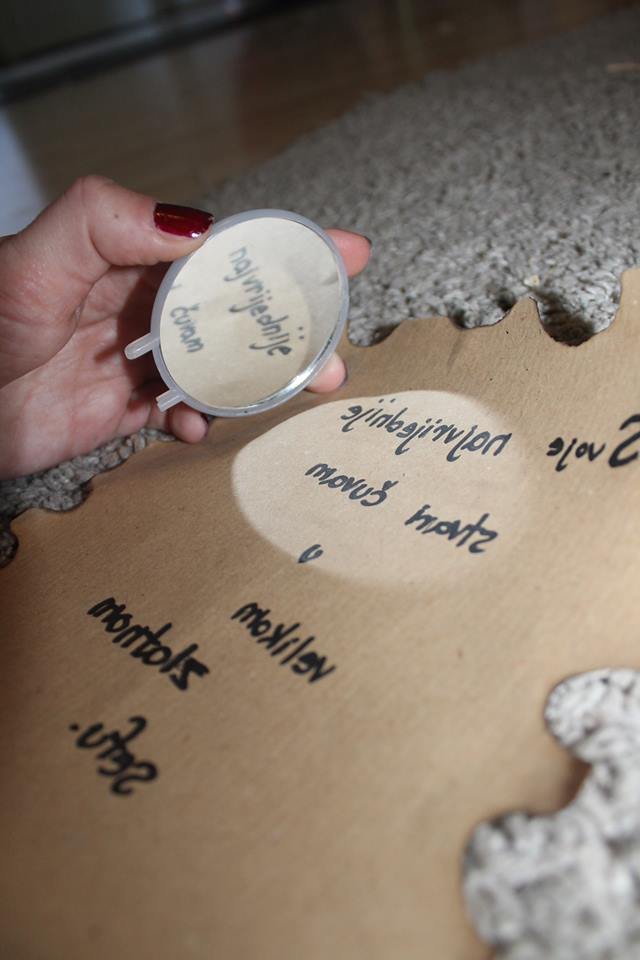 najvrijednije
čuvam
Svoje najvrijednije
stvari čuvam
u
velikom
zlatnom
sefu.